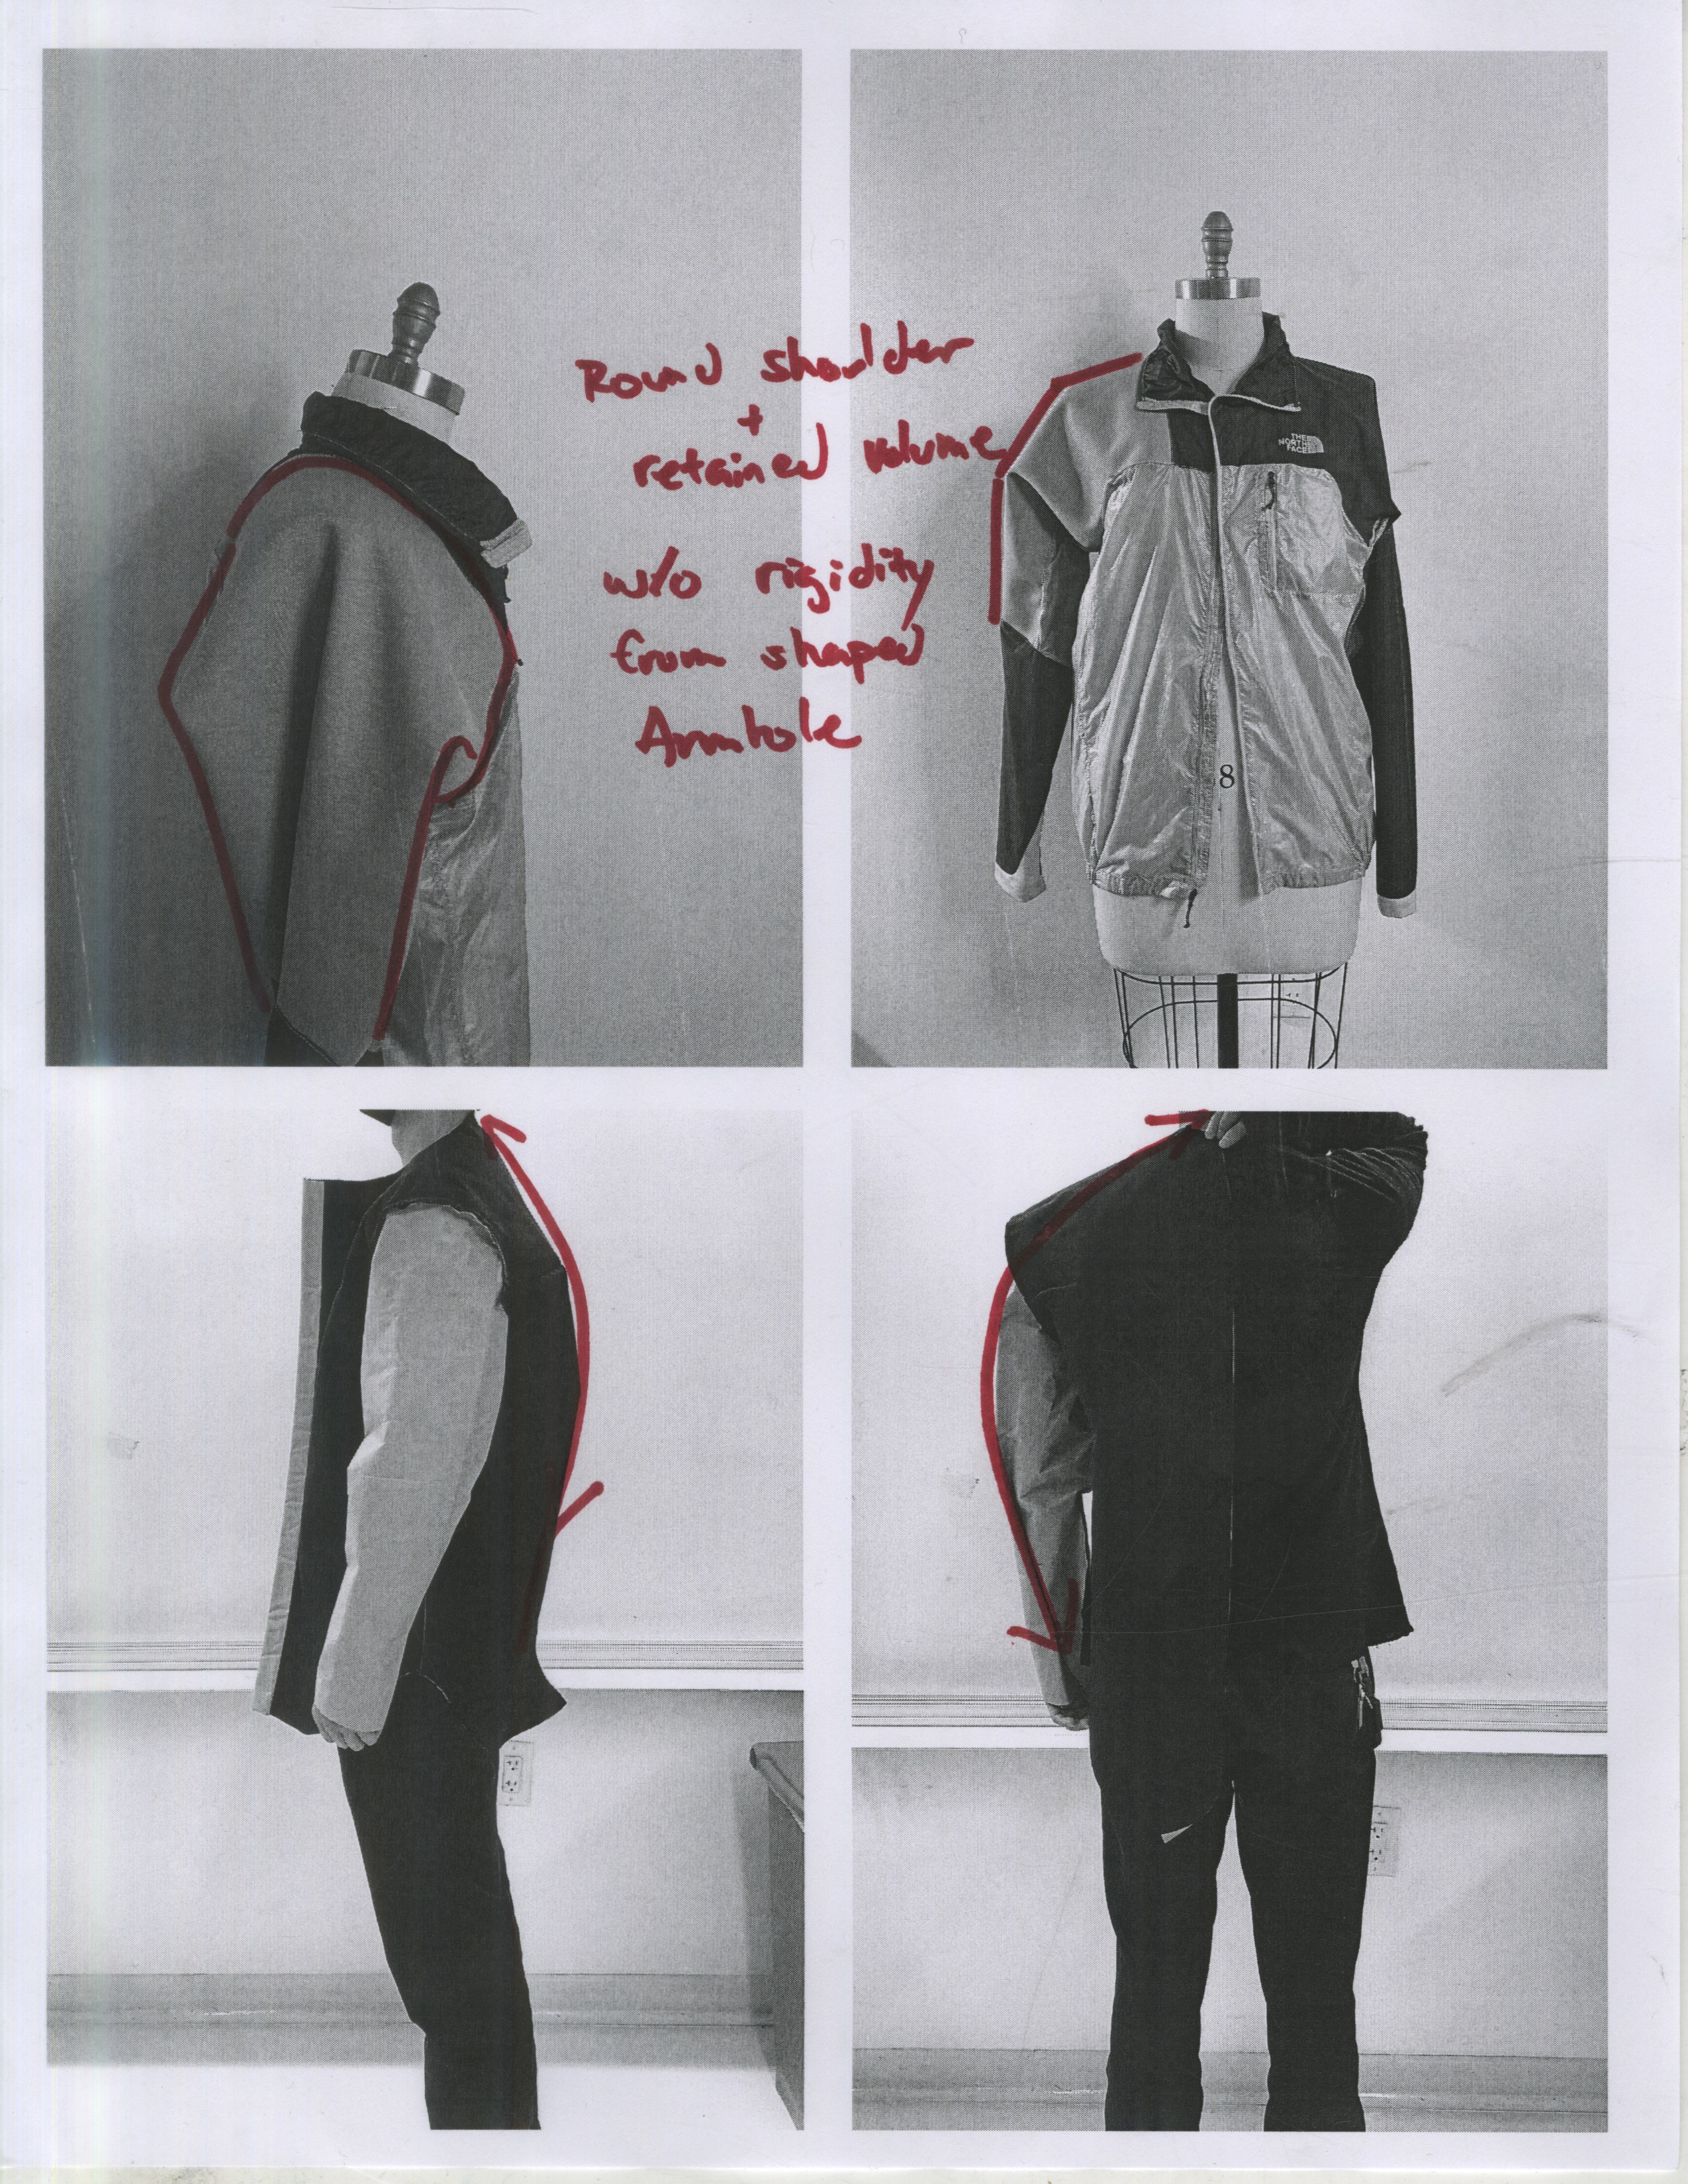 Round shoulder
+
retained volume
w/o rigidity
from shaped
Armhole
THE
NORTH
FACE
8